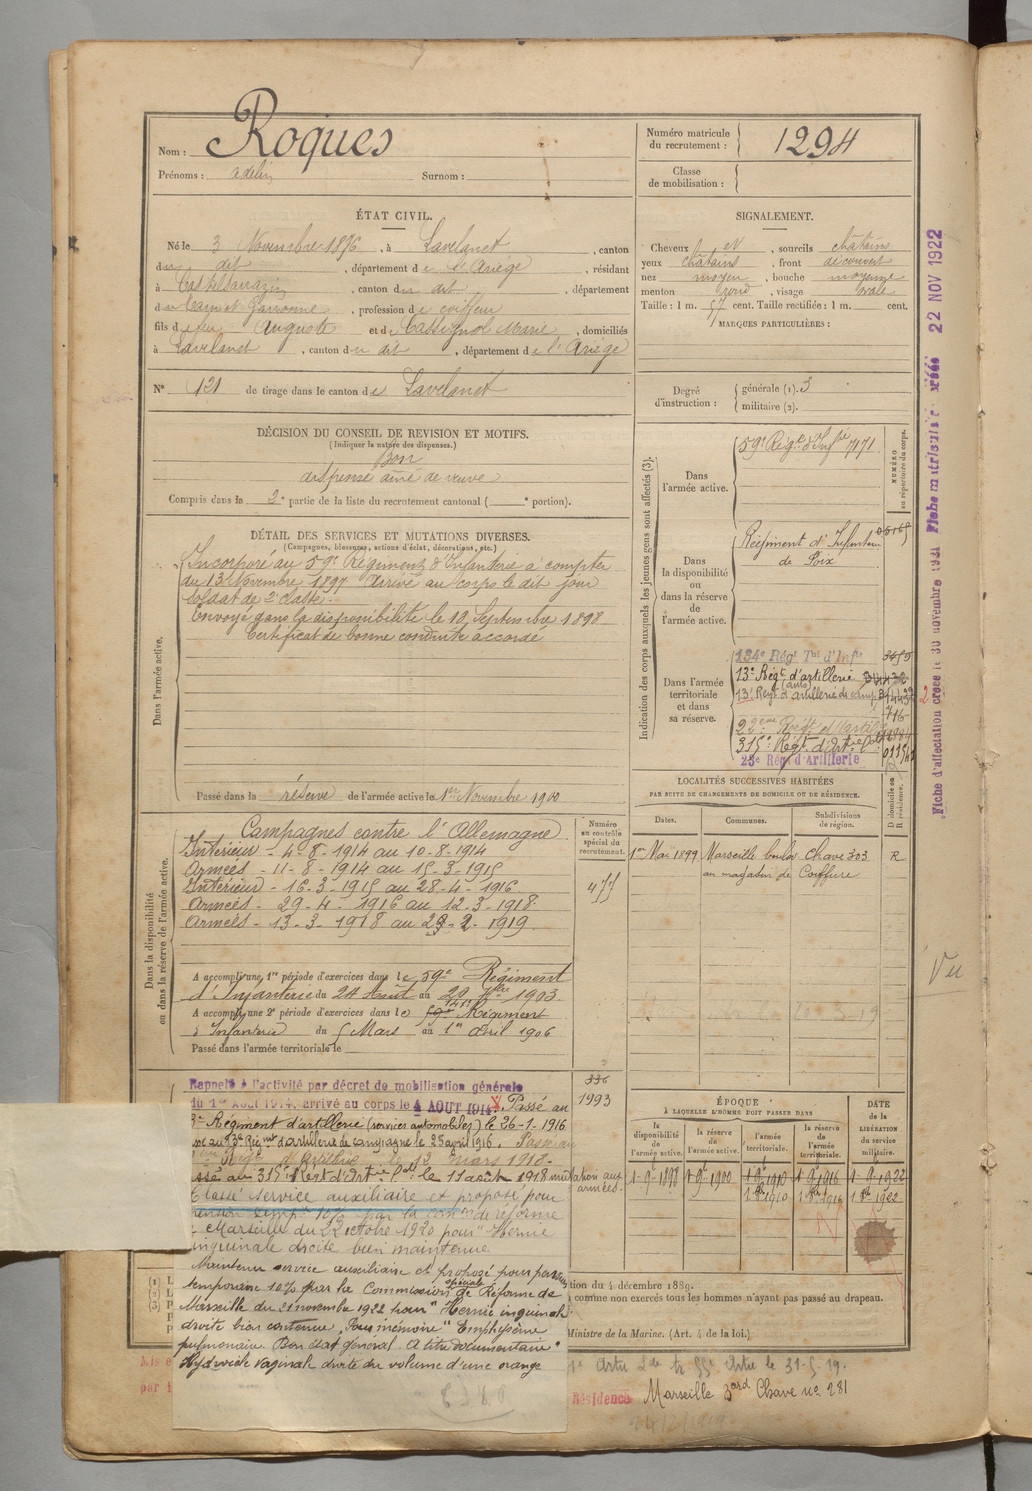 Nom : Roques
Prénoms : Adelin Surnom :
Numéro matricule du recrutement : 1294
Classe de mobilisation :
ÉTAT CIVIL.
Né le 3 Novembre 1876, à Lavelanet, canton
du dit, département de l'Ariège, résidant
à Castelsarrazin, canton du dit, département
du Tarn et Garonne, profession de coiffeur
fils de feu Auguste et de Cassignol Marie, domiciliés
à Lavelanet, canton du dit, département de l'Ariège
N° 121 de tirage dans le canton de Lavelanet
SIGNALEMENT.
Cheveux et, sourcils châtains
yeux châtains, front découvert
nez moyen, bouche moyenne
menton rond, visage ovale
Taille : 1 m. 57 cent. Taille rectifiée : 1 m. cent.
MARQUES PARTICULIÈRES :
Degré d'instruction :
générale (1). 3
militaire (2).
DÉCISION DU CONSEIL DE REVISION ET MOTIFS.
(Indiquer la nature des dispenses.)
Bon
dispensé aîné de veuve
Compris dans la 2e partie de la liste du recrutement cantonal ( e portion).
DÉTAIL DES SERVICES ET MUTATIONS DIVERSES.
(Campagnes, blessures, actions d'éclat, décorations, etc.)
Dans l'armée active.
Incorporé au 59e Régiment d'Infanterie à compter
du 13 Novembre 1897 Arrivé au corps le dit jour
Soldat de 2e classe.
Envoyé dans la disponibilité le 18 Septembre 1898
Certificat de bonne conduite accordé
Passé dans la réserve de l'armée active le 1er Novembre 1900
Indication des corps auxquels les jeunes gens sont affectés (3).
Dans l'armée active.
59e Régt d'Infrie 7171
NUMÉRO au répertoire du corps.
Dans la disponibilité ou dans la réserve de l'armée active.
Régiment d'Infanterie
de Foix
Dans l'armée territoriale et dans sa réserve.
134e Régt Tal d'Infie
13e Régt d'artillerie
13e Régt d'artillerie de camp
315e Régt d'Artie
23e Rég. d'Artillerie
Dans la disponibilité ou dans la réserve de l'armée active.
Campagnes contre l'Allemagne
Intérieur - 4-8-1914 au 10-8-1914
Armées - 11-8-1914 au 15-3-1915
Intérieur - 16-3-1915 au 28-4-1916
Armées - 29-4-1916 au 12-3-1918
Armées - 13-3-1918 au 23-2-1919
Numéro au contrôle spécial du recrutement.
477
A accompli une 1re période d'exercices dans le 59e Régiment
d'Infanterie du 24 Août au 20 7bre 1903.
A accompli une 2e période d'exercices dans le 59e 141e Régiment
d'Infanterie du 5 Mars au 1er Avril 1906
Passé dans l'armée territoriale le
LOCALITÉS SUCCESSIVES HABITÉES
PAR SUITE DE CHANGEMENTS DE DOMICILE OU DE RÉSIDENCE.
D domicile ou R résidence.
Dates. Communes. Subdivisions de région.
1er Mai 1899 Marseille boulev. Chave 303 R
au magasin de Coiffure
336
1993
Rappelé à l'activité par décret de mobilisation générale
du 1er Août 1914, arrivé au corps le 4 AOUT 1914. Passé au
Régiment d'artillerie (services automobiles) le 26-1-1916
au 13e Régiment d'artillerie de campagne le 25 avril 1916. Passé au
Régt d'Artillerie le 12 mars 1918.
ssé au 315e Régt d'Artie le 11 août 1918 mutation aux armées.
Classé service auxiliaire et proposé pour
pension temp. 10% par la comon de réforme
Marseille du 23 octobre 1920 pour "Hernie
inguinale droite bien maintenue
Maintenu service auxiliaire et proposé pour pension
temporaire 10% par la Commission spéciale de Réforme de
Marseille du 21 novembre 1922 pour "Hernie inguinale
droite bien contenue "Pour mémoire" Emphysème
pulmonaire. Bon état général. A titre documentaire"
Hydrocèle vaginale droite du volume d'une orange
ÉPOQUE
À LAQUELLE L'HOMME DOIT PASSER DANS
DATE de la LIBÉRATION du service militaire.
la disponibilité de l'armée active. la réserve de l'armée active. l'armée territoriale. la réserve de l'armée territoriale.
1-9-1898 1-9-1900 1-9-1910 1-9-1916 1-9-1922
1910 1916 1922
tion du 4 décembre 1889.
comme non exercés tous les hommes n'ayant pas passé au drapeau.
Ministre de la Marine. (Art. 4 de la loi.)
le 31-5-19.
Résidence Marseille Bard Chave no 281
Fiche d'affectation créée le 30 novembre 1921
Fiche matricule créée 22 NOV 1922
Vu